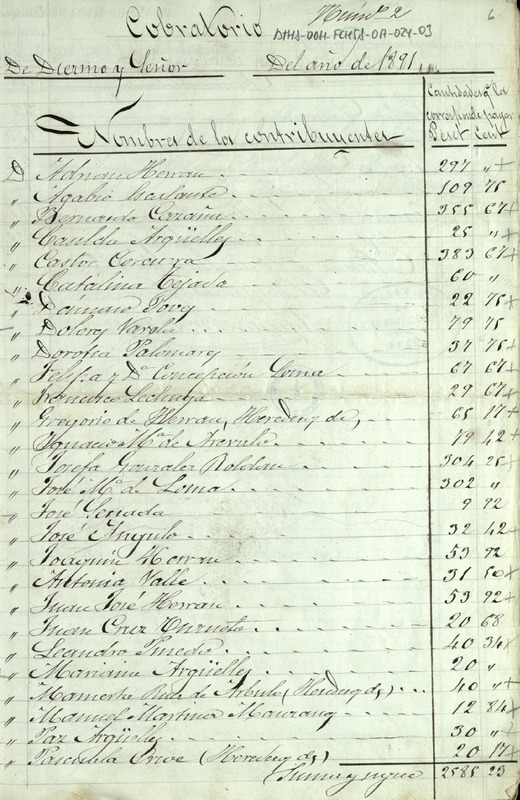 Numº 2
6
Cobratorio
DMHA-OOH-FCHGA-OA-024-03
De Diezmo y Señor Del año de 1891
Cantidades q. les
corresponde pagar
Nombres de los contribuyentes Peset Cent
D Adrian Herran 297 „ +
„ Agabio Escalante 109 75
„ Bernardo Lazani 355 67 +
„ Casilda Argüelles 25 „ +
„ Castor Corcuera 383 67 +
„ Catalina Tejada 60 „
„ Dámaso Povey 22 75 +
„ Dolores Varela 79 75
„ Dorotea Palomares 37 75 +
„ Felipa y Dª Concepción Loma 67 67 +
„ Francisco Lechuga 29 67 +
„ Gregorio de Herran, (Herederos de, 65 17 +
„ Ygnacio Mª de Arevalo 79 42 +
„ Josefa Gonzales Roldan 304 25 +
„ José Mª de Loma 302 „
„ José Losada 9 92
„ José Angulo 32 42 +
„ Joaquin Herran 53 92
„ Antonia Valle 31 50 +
„ Juan José Herran 53 92 +
„ Juan Cruz 20 68
„ Leandro Pinedo 40 34 +
„ Mariano Argüelles 20 „
„ Mamerta Ruiz de Arbulo (Herederos de) 40 „ +
„ Manuel Martinez 12 84 +
„ Paz Argüelles 30 „
„ Pascuala Orive (Herederos de) 20 17 +
Suma y sigue 2585 23